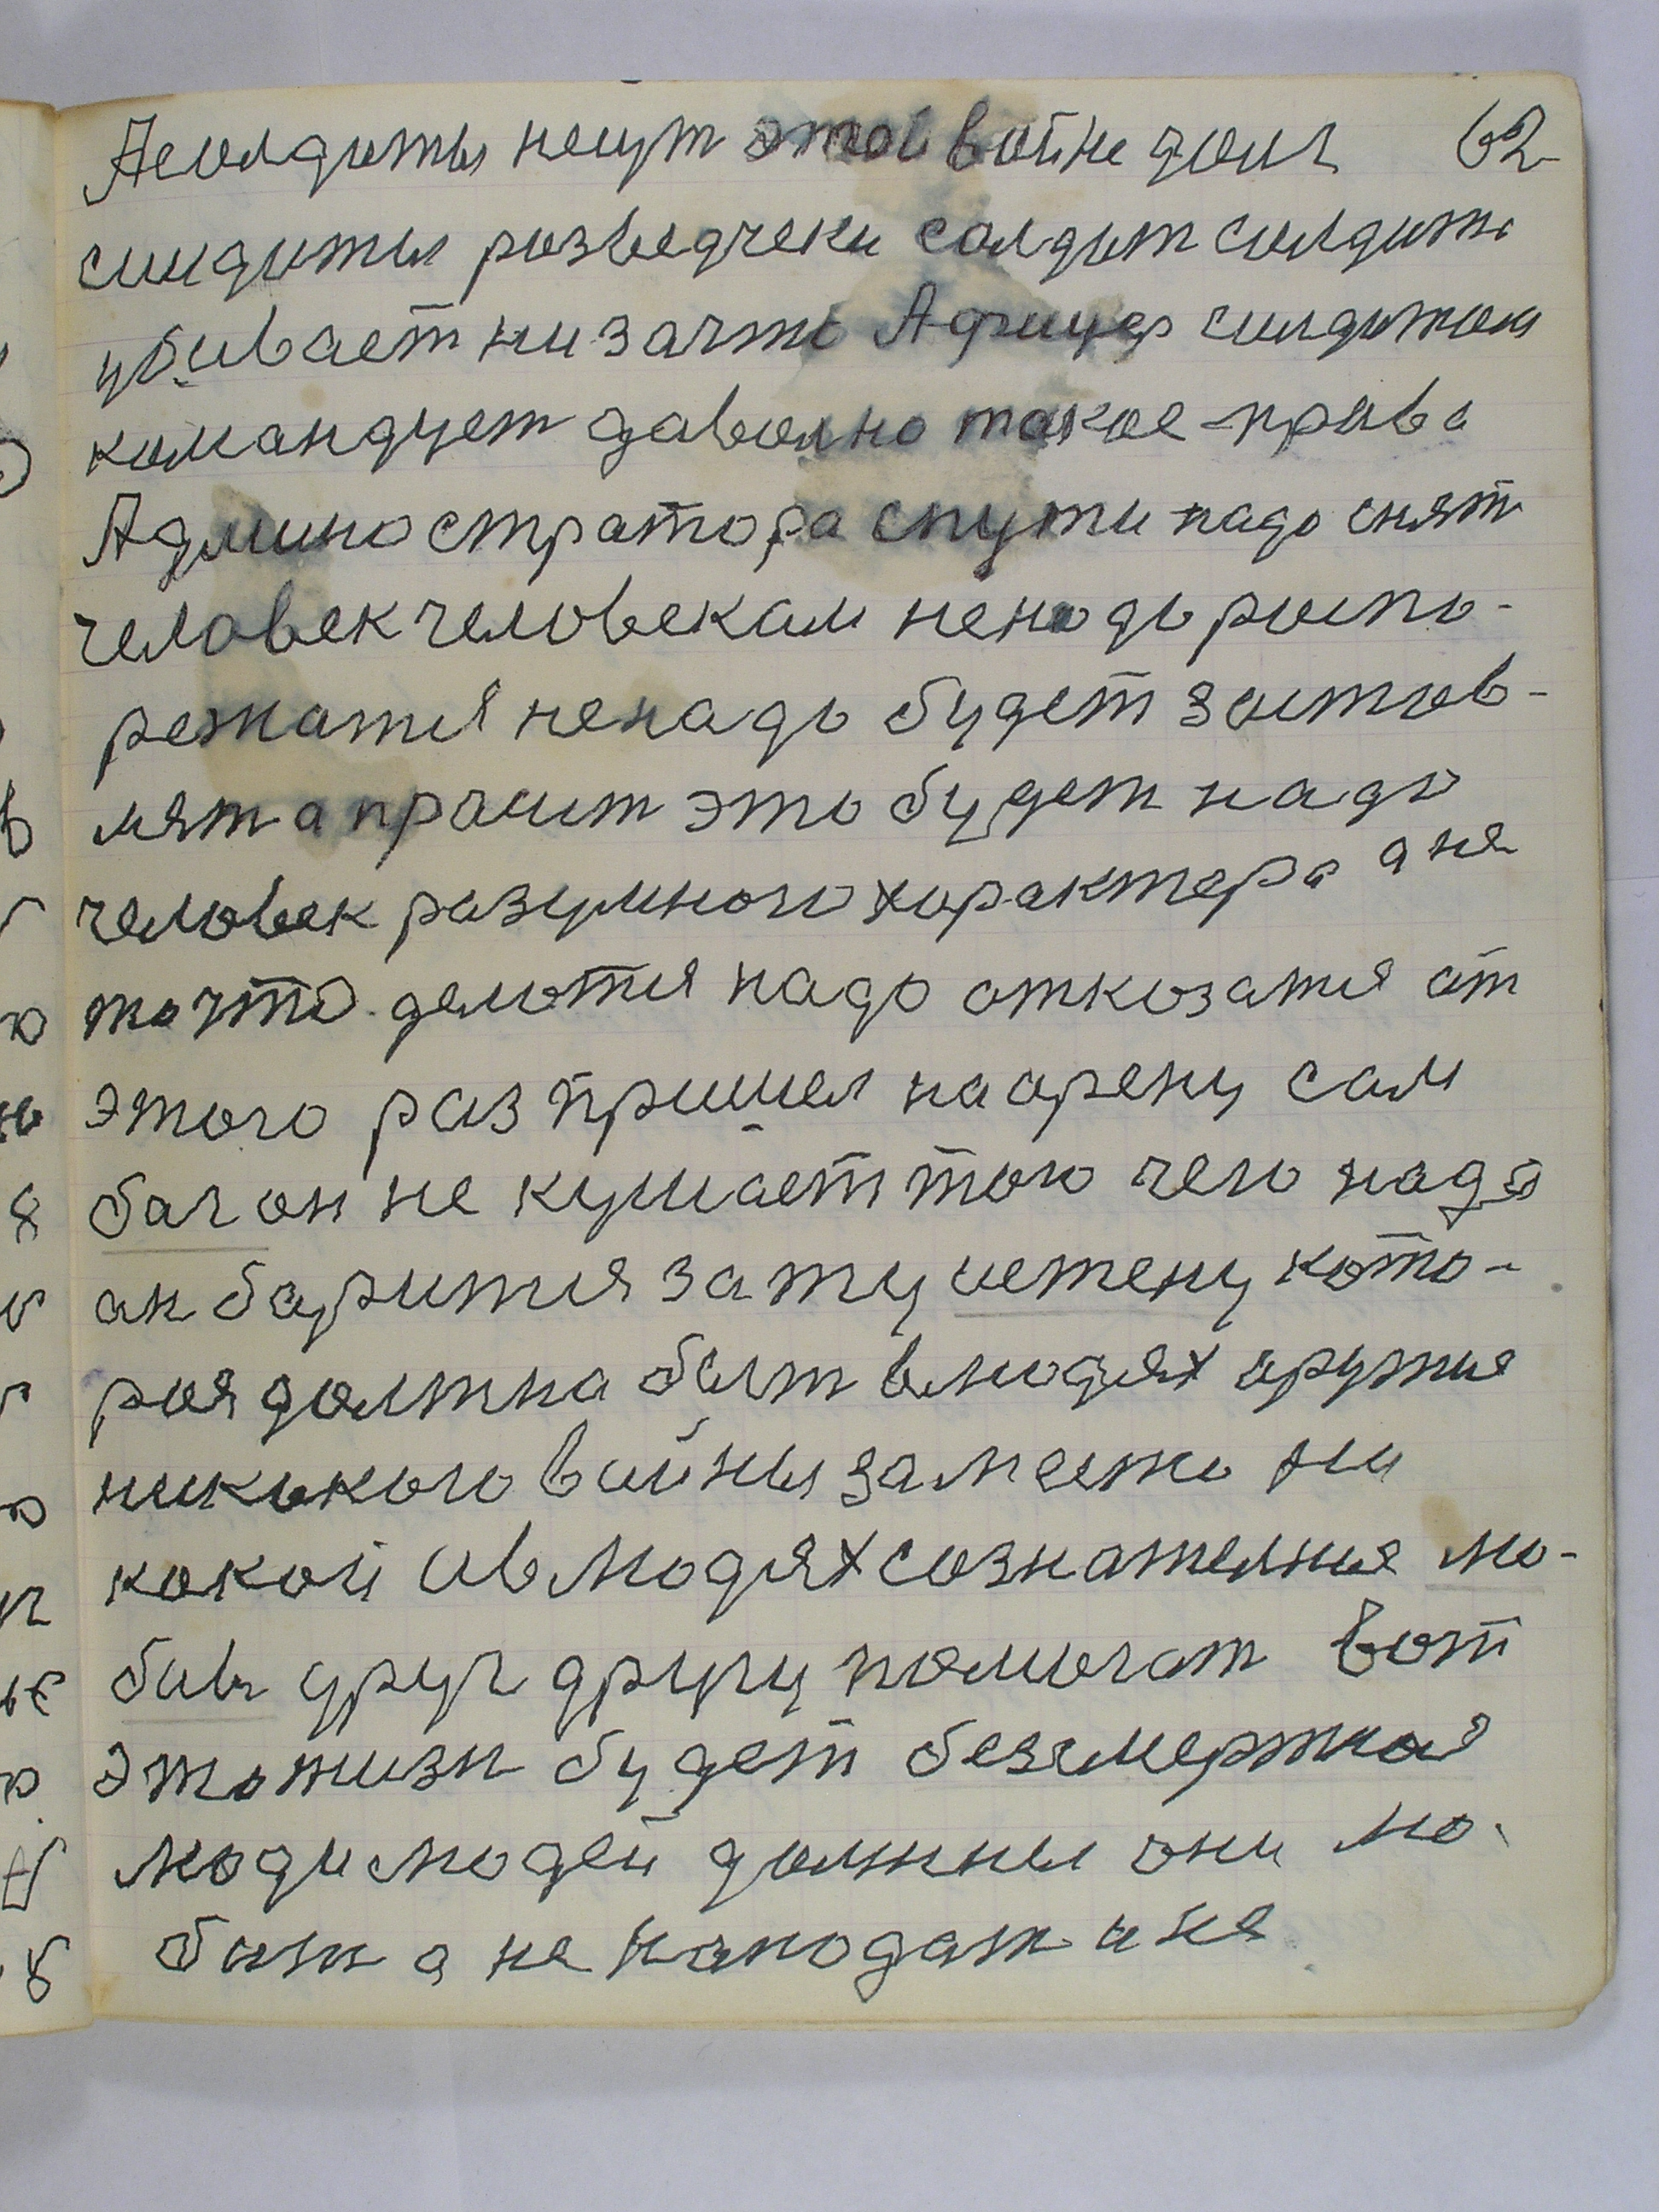 Асолдаты несут этой войне долг 62
солдаты розведчеки солдат солдата
убивает низачто Афицер солдатом
командует даволно такое права
Админостратора спути надо снят
человек человекам ненадо распо-
режатся ненадо будет застав-
лят а прасит это будет надо
человек разумного характера а не
то что делается надо отказатся от
этого раз пришел на арену сам
бог он не кушает того чего надо
он борится за ту истену кото-
роя должна быт влюдях оружия
никокого войны заместо ни
кокой а в людях сознателния лю-
бов друг другу помогат вот
это жизн будет безсмертная
люди людей должны они лю-
бит а не нападат и не